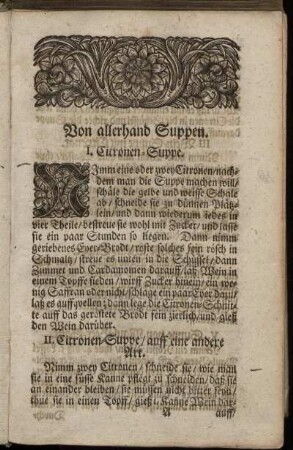 Von allerhand Suppen.
I. Citronen-Suppe.
NImm eine oder zwey Citronen/nach-
dem man die Suppe machen will/
schäle die gelbe und weisse Schale
ab/ schneide sie zu dünnen Plätz-
lein/ und dann wiederum jedes in
vier Theile/ bestreue sie wohl mit Zucker/ und lasse
sie ein paar Stunden so liegen. Dann nimm
geriebenes Eyer-Brodt/ röste solches fein rösch in
Schmaltz/ streue es unten in die Schüssel/ dann
Zimmet und Cardamomen darauff/ laß Wein in
einem Topffe sieden/ wirff Zucker hinein/ ein we-
nig Saffran oder nicht/ schlage ein paar Eyer darzu/
laß es auffwellen; dann lege die Citronen-Schnit-
te auff das geröstete Brodt fein zierlich/ und gieß
den Wein darüber.
II. Citronen-Suppe/ auff eine andere
Art.
Nimm zwey Citronen/ schneide sie/ wie man
sie in eine süsse Kanne pflegt zu schneiden/ daß sie
an einander bleiben/ sie müssen nicht bitter seyn/
thue sie in einen Topff/ gieß 1. Kanne Wein dar-
A auff/